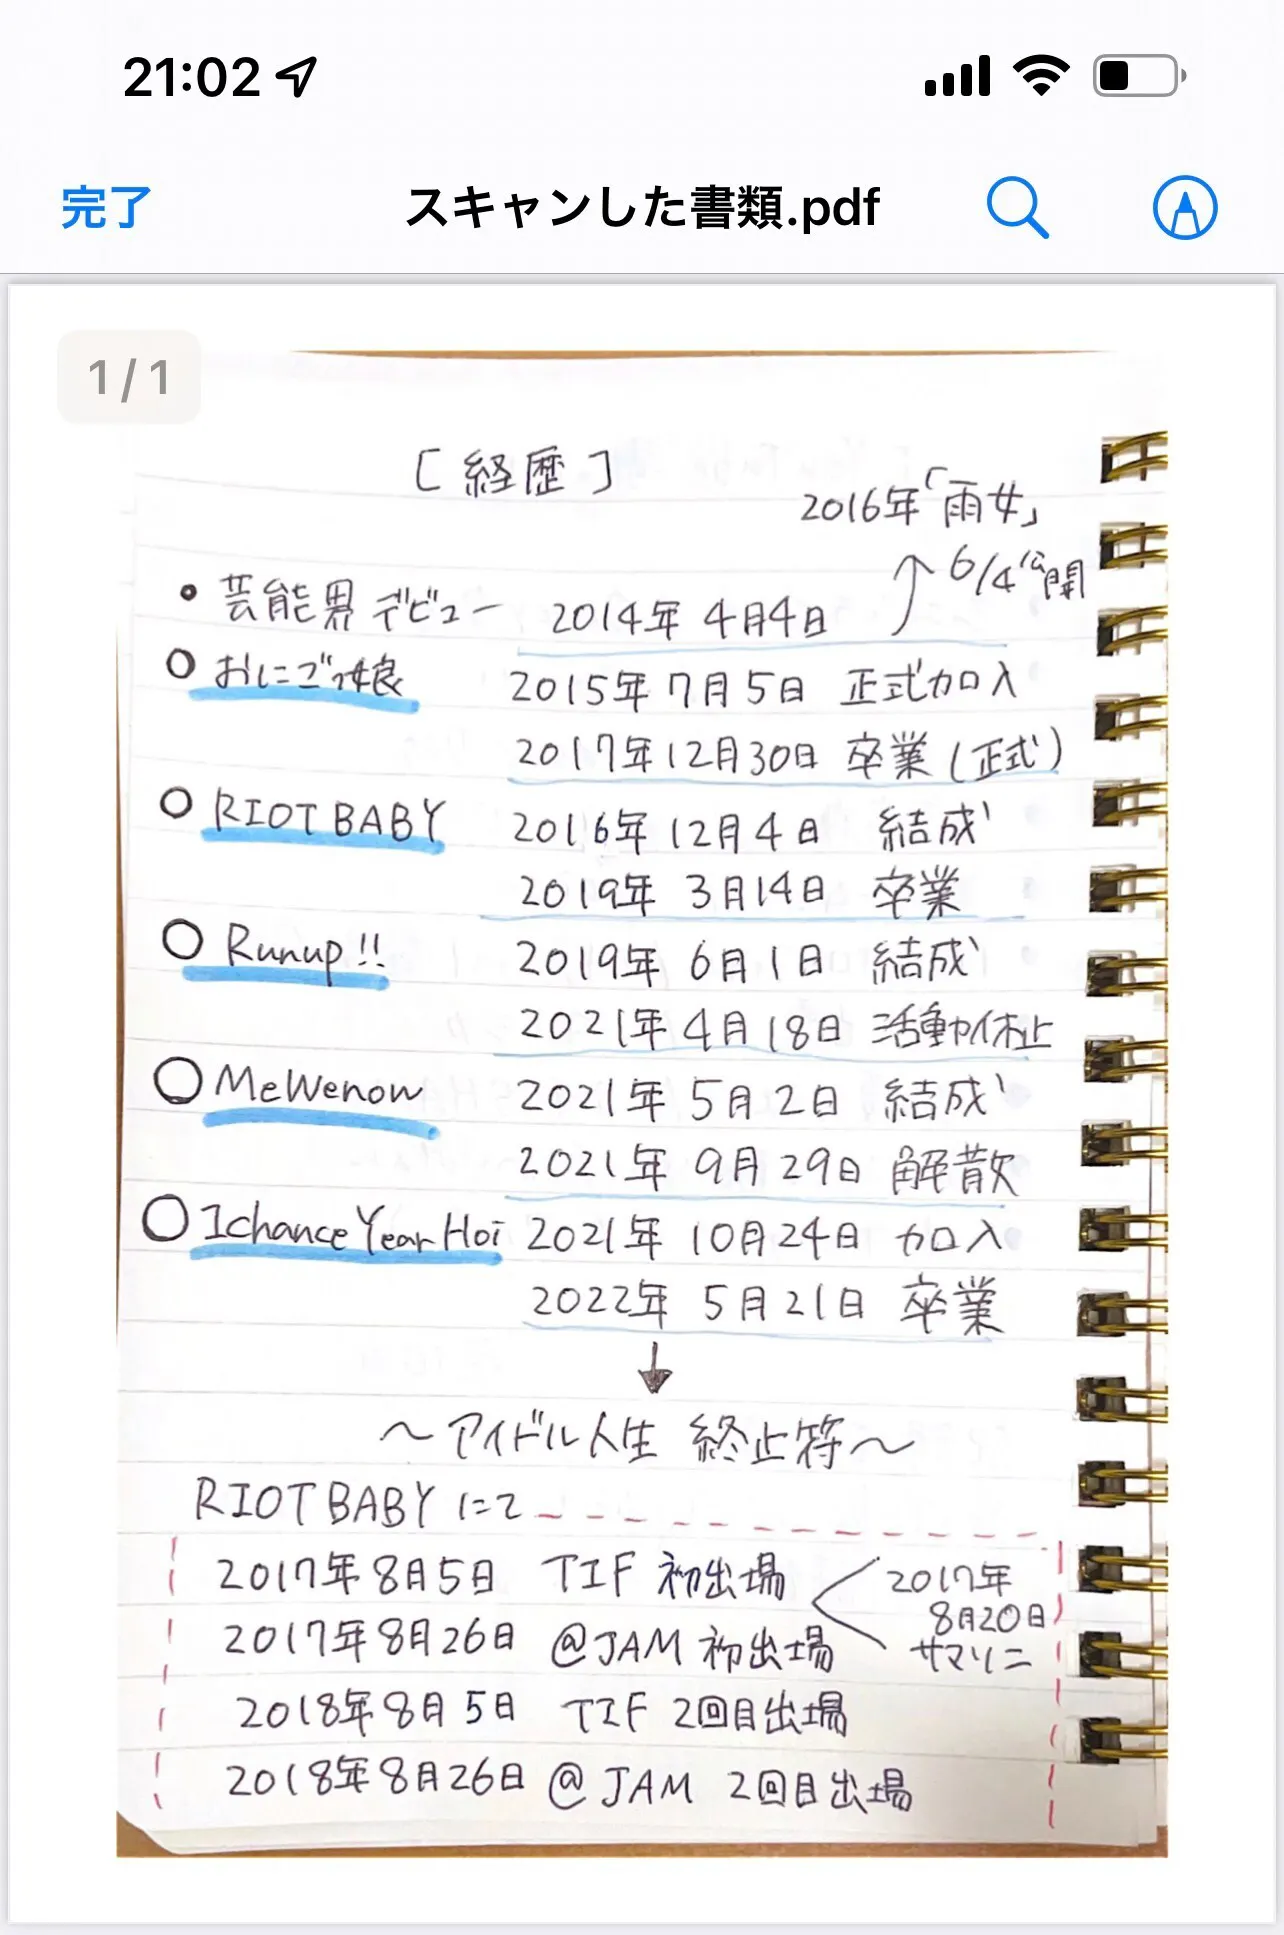 21:02
完了
スキャンした書類.pdf
1 / 1
[経歴]
2016年「雨女」
6/4公開
芸能界デビュー 2014年 4月4日
おにごっ娘 2015年 7月 5日 正式加入
2017年12月30日 卒業(正式)
RIOT BABY 2016年 12月 4日 結成
2019年 3月14日 卒業
Runup!! 2019年 6月1日 結成
2021年 4月 18日 活動休止
MeWenow 2021年 5月 2日 結成
2021年 9月 29日 解散
IchanceYearHoi 2021年 10月24日 加入
2022年 5月21日 卒業
↓
〜アイドル人生 終止符〜
RIOT BABY にて
2017年8月5日 TIF 初出場
2017年
8月20日
サマソニ
2017年8月26日 @JAM 初出場
2018年8月 5日 TIF 2回目出場
2018年8月26日 @JAM 2回目出場